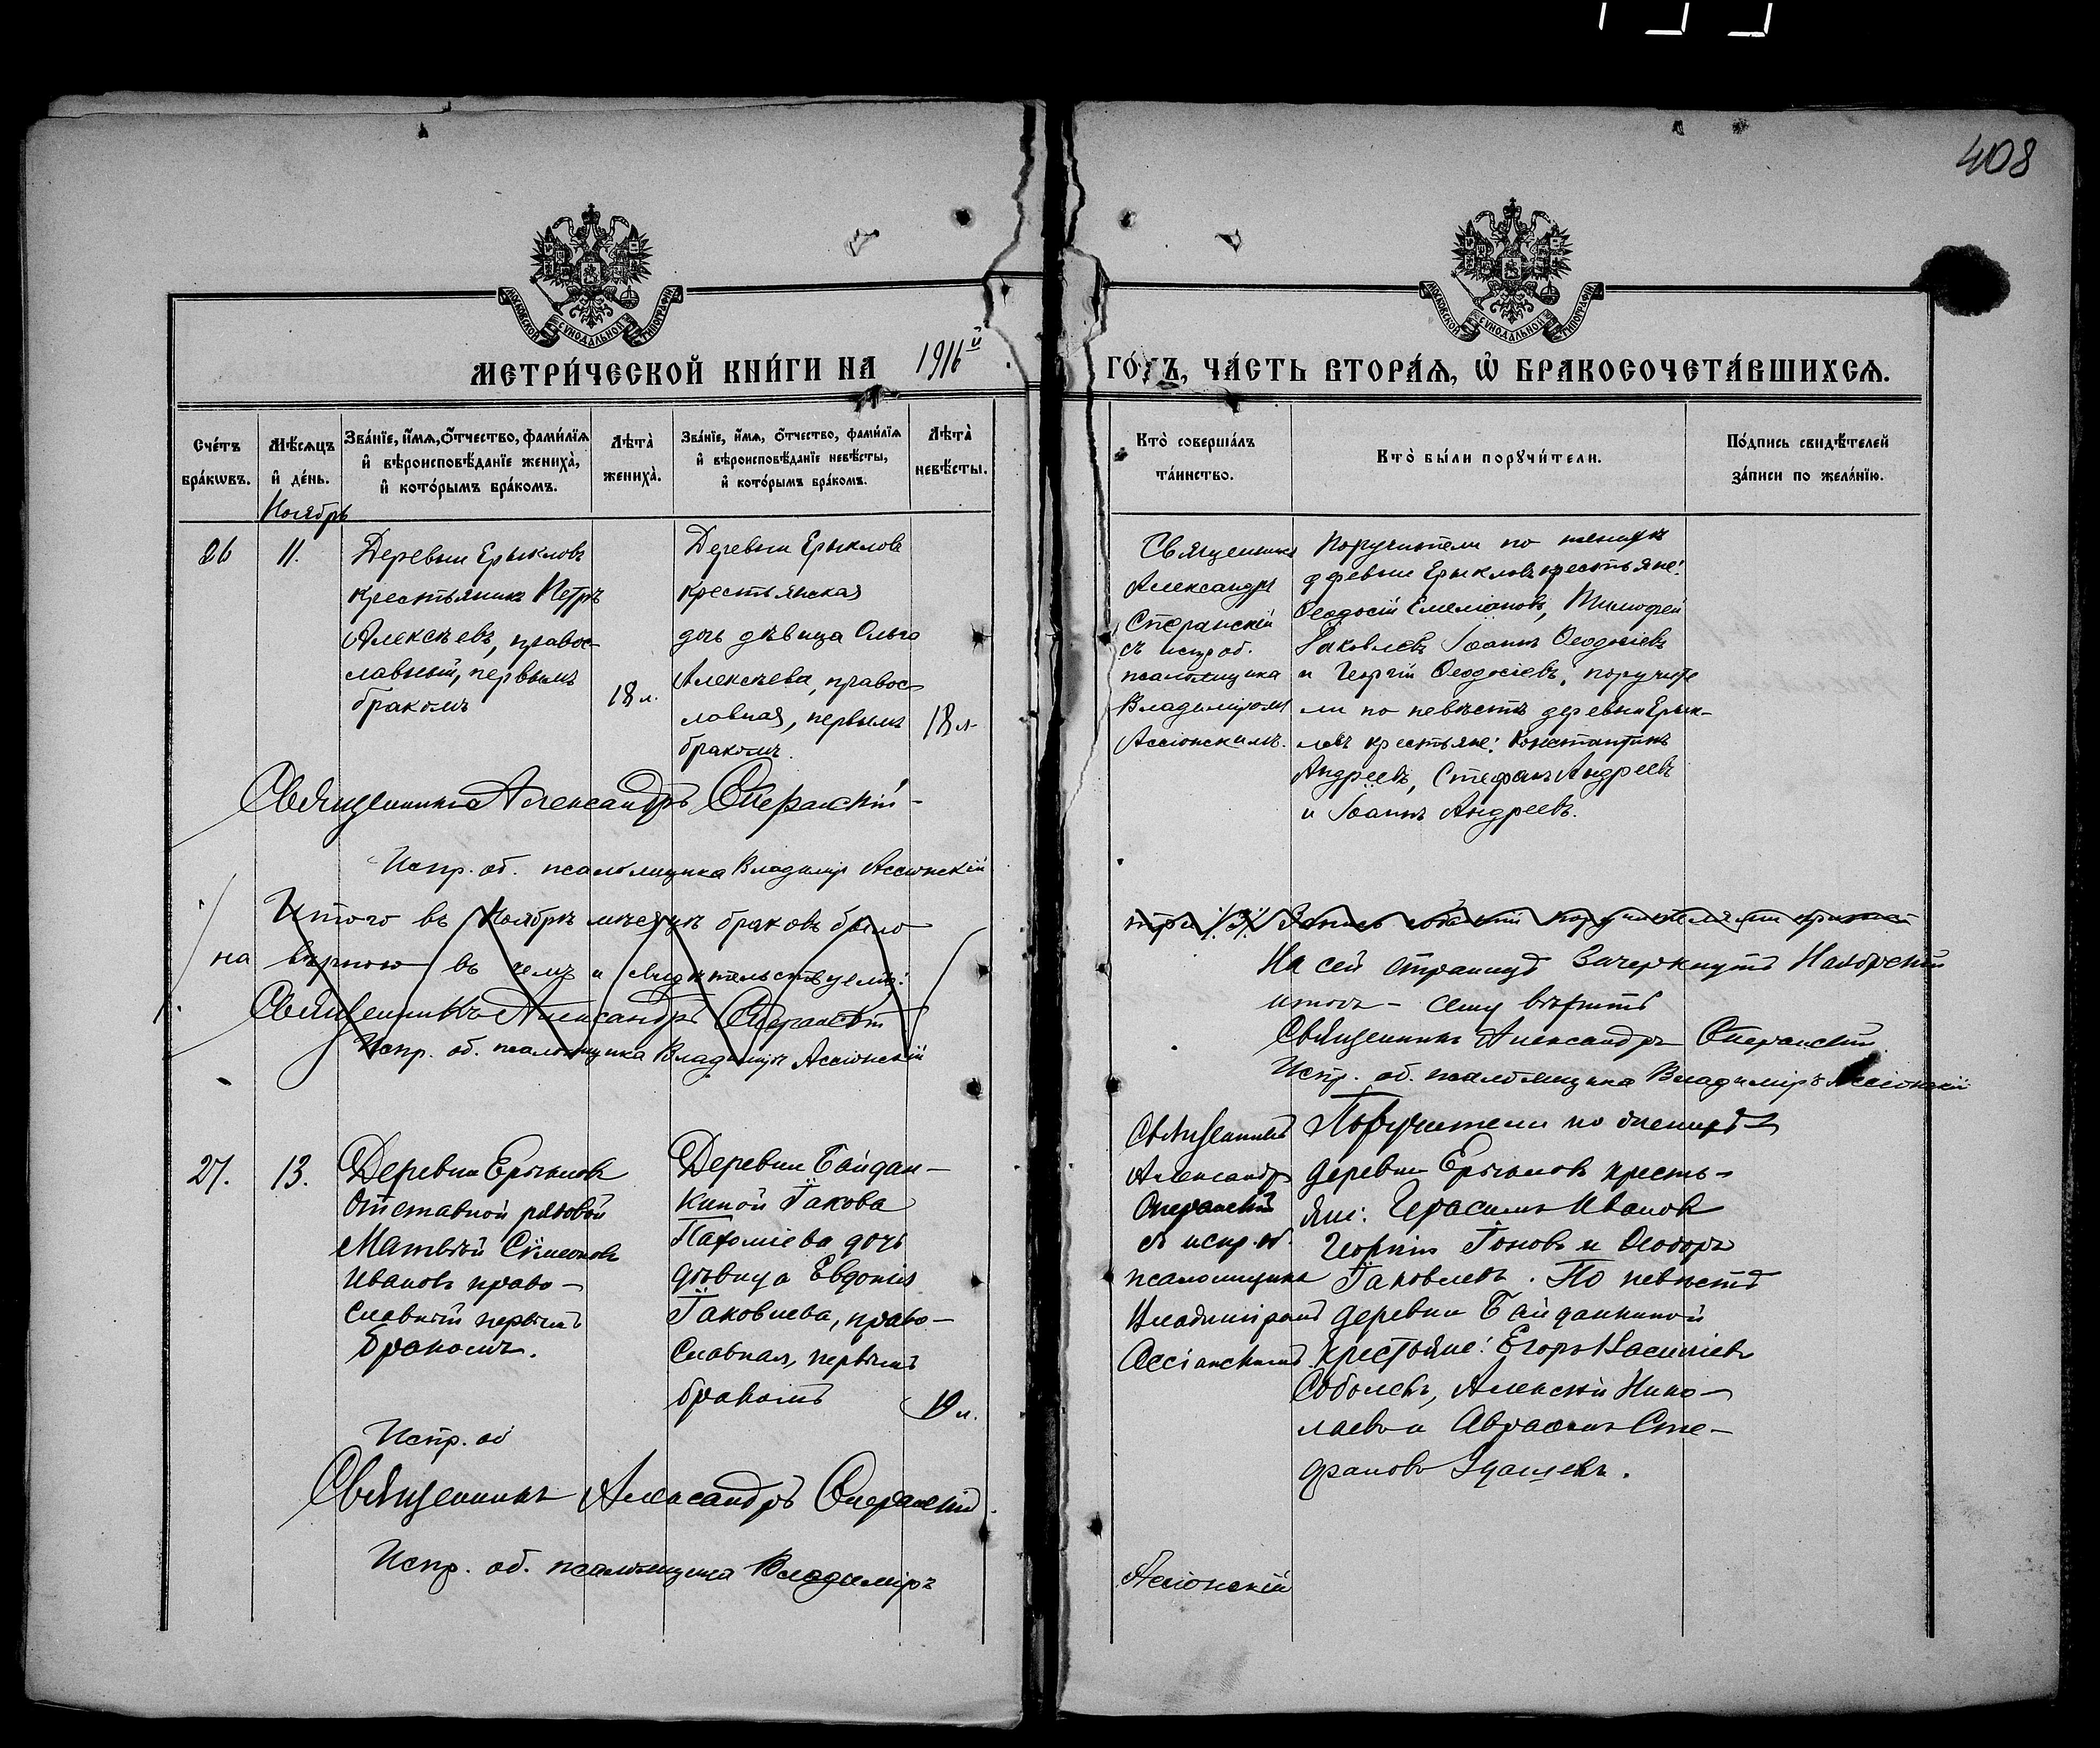 408
МОСКОВСКОЙ СѴНОДАЛЬНОЙ ТИПОГРАФІИ
МОСКОВСКОЙ СѴНОДАЛЬНОЙ ТИПОГРАФІИ
МЕТРИ́ЧЕСКОЙ КНИ́ГИ НА 1916й ГО́ДЪ, ЧА́СТЬ ВТОРА́Ѧ, Ѡ҆ БРАКОСОЧЕТА́ВШИХСѦ.
Сче́тъ бра́кѡвъ.
Мѣ́сѧцъ и҆ де́нь.
Зва́нїе, и҆́мѧ, ѻ҆́тчество, фами́лїѧ и҆ вѣроисповѣ́данїе жениха̀, и҆ кото́рымъ бра́комъ.
Лѣта̀ жениха̀.
Зва́нїе, и҆́мѧ, ѻ҆́тчество, фами́лїѧ и҆ вѣроисповѣ́данїе невѣ́сты, и҆ кото́рымъ бра́комъ.
Лѣта̀ невѣ́сты.
Кто̀ соверша́лъ та́инство.
Кто̀ бы́ли порꙋчи́тели.
По́дпись свидѣ́телей за́писи по жела́нїю.
Ноябрь
26
11.
Деревни Ерыкловъ
крестьянинъ Петръ
Алексѣевъ, правос-
лавный, первымъ
бракомъ
18 л.
Деревни Ерыкловъ
крестьянская
дочь дѣвица Ольга
Алексѣева, правос-
лавная, первымъ
бракомъ.
18 л.
Священникъ
Александръ
Сперанскій
съ испр. об.
псаломщика
Владиміромъ
Ассіонскимъ.
Поручители по женихѣ
деревни Ерыкловъ крестьяне:
Ѳеодосій Емеліановъ, Тимофей
Яковлевъ Іоаннъ Ѳеодосіевъ
и Георгій Ѳеодосіевъ, поручите
ли по невѣстѣ деревни Ерык-
ловъ крестьяне: Константинъ
Андреевъ, Стефанъ Андреевъ
и Іоаннъ Андреевъ.
Священникъ Александръ Сперанскій
Испр. об. псаломщика Владимір Ассіонскій
Итого въ Ноябрѣ мѣсяцѣ браковъ было
три /3/. Запись
на вѣрною въ чемъ и свидѣтельствуемъ:
Священникъ Александръ Сперанскій
Испр. об. псаломщика Владиміръ Ассіонскій
На сей страницѣ Зачеркнутъ Ноябрскій
итогъ – сему вѣрить
Священникъ Александръ Сперанскій
Испр. об. псаломщика Владиміръ Ассіонскій
27.
13.
Деревни Ерыкловъ
отставной рядовой
Матвѣй Сѵмеоновъ
Ивановъ право-
славный первымъ
бракомъ.
Деревни Байдан-
киной Іакова
Пахоміева дочь
дѣвица Евдокія
Іаковлева, право-
славная, первымъ
бракомъ
19 л.
Священникъ
Александръ
Сперанскій
съ испр. об.
псаломщика
Владиміромъ
Ассіонскимъ.
Поручители по женихѣ
деревни Ерыкловъ кресть-
яне: Герасимъ Ивановъ
Георгій Іоновъ и Ѳеодоръ
Іаковлевъ. По невѣстѣ
деревни Байданкиной
крестьяне: Егоръ Василіевъ
Соболевъ, Алексѣй Нико-
лаевъ и Авраамъ Сте-
фановъ
Испр. об
Священникъ Александръ Сперанскій.
Испр. об. псаломщика Владиміръ
Ассіонскій